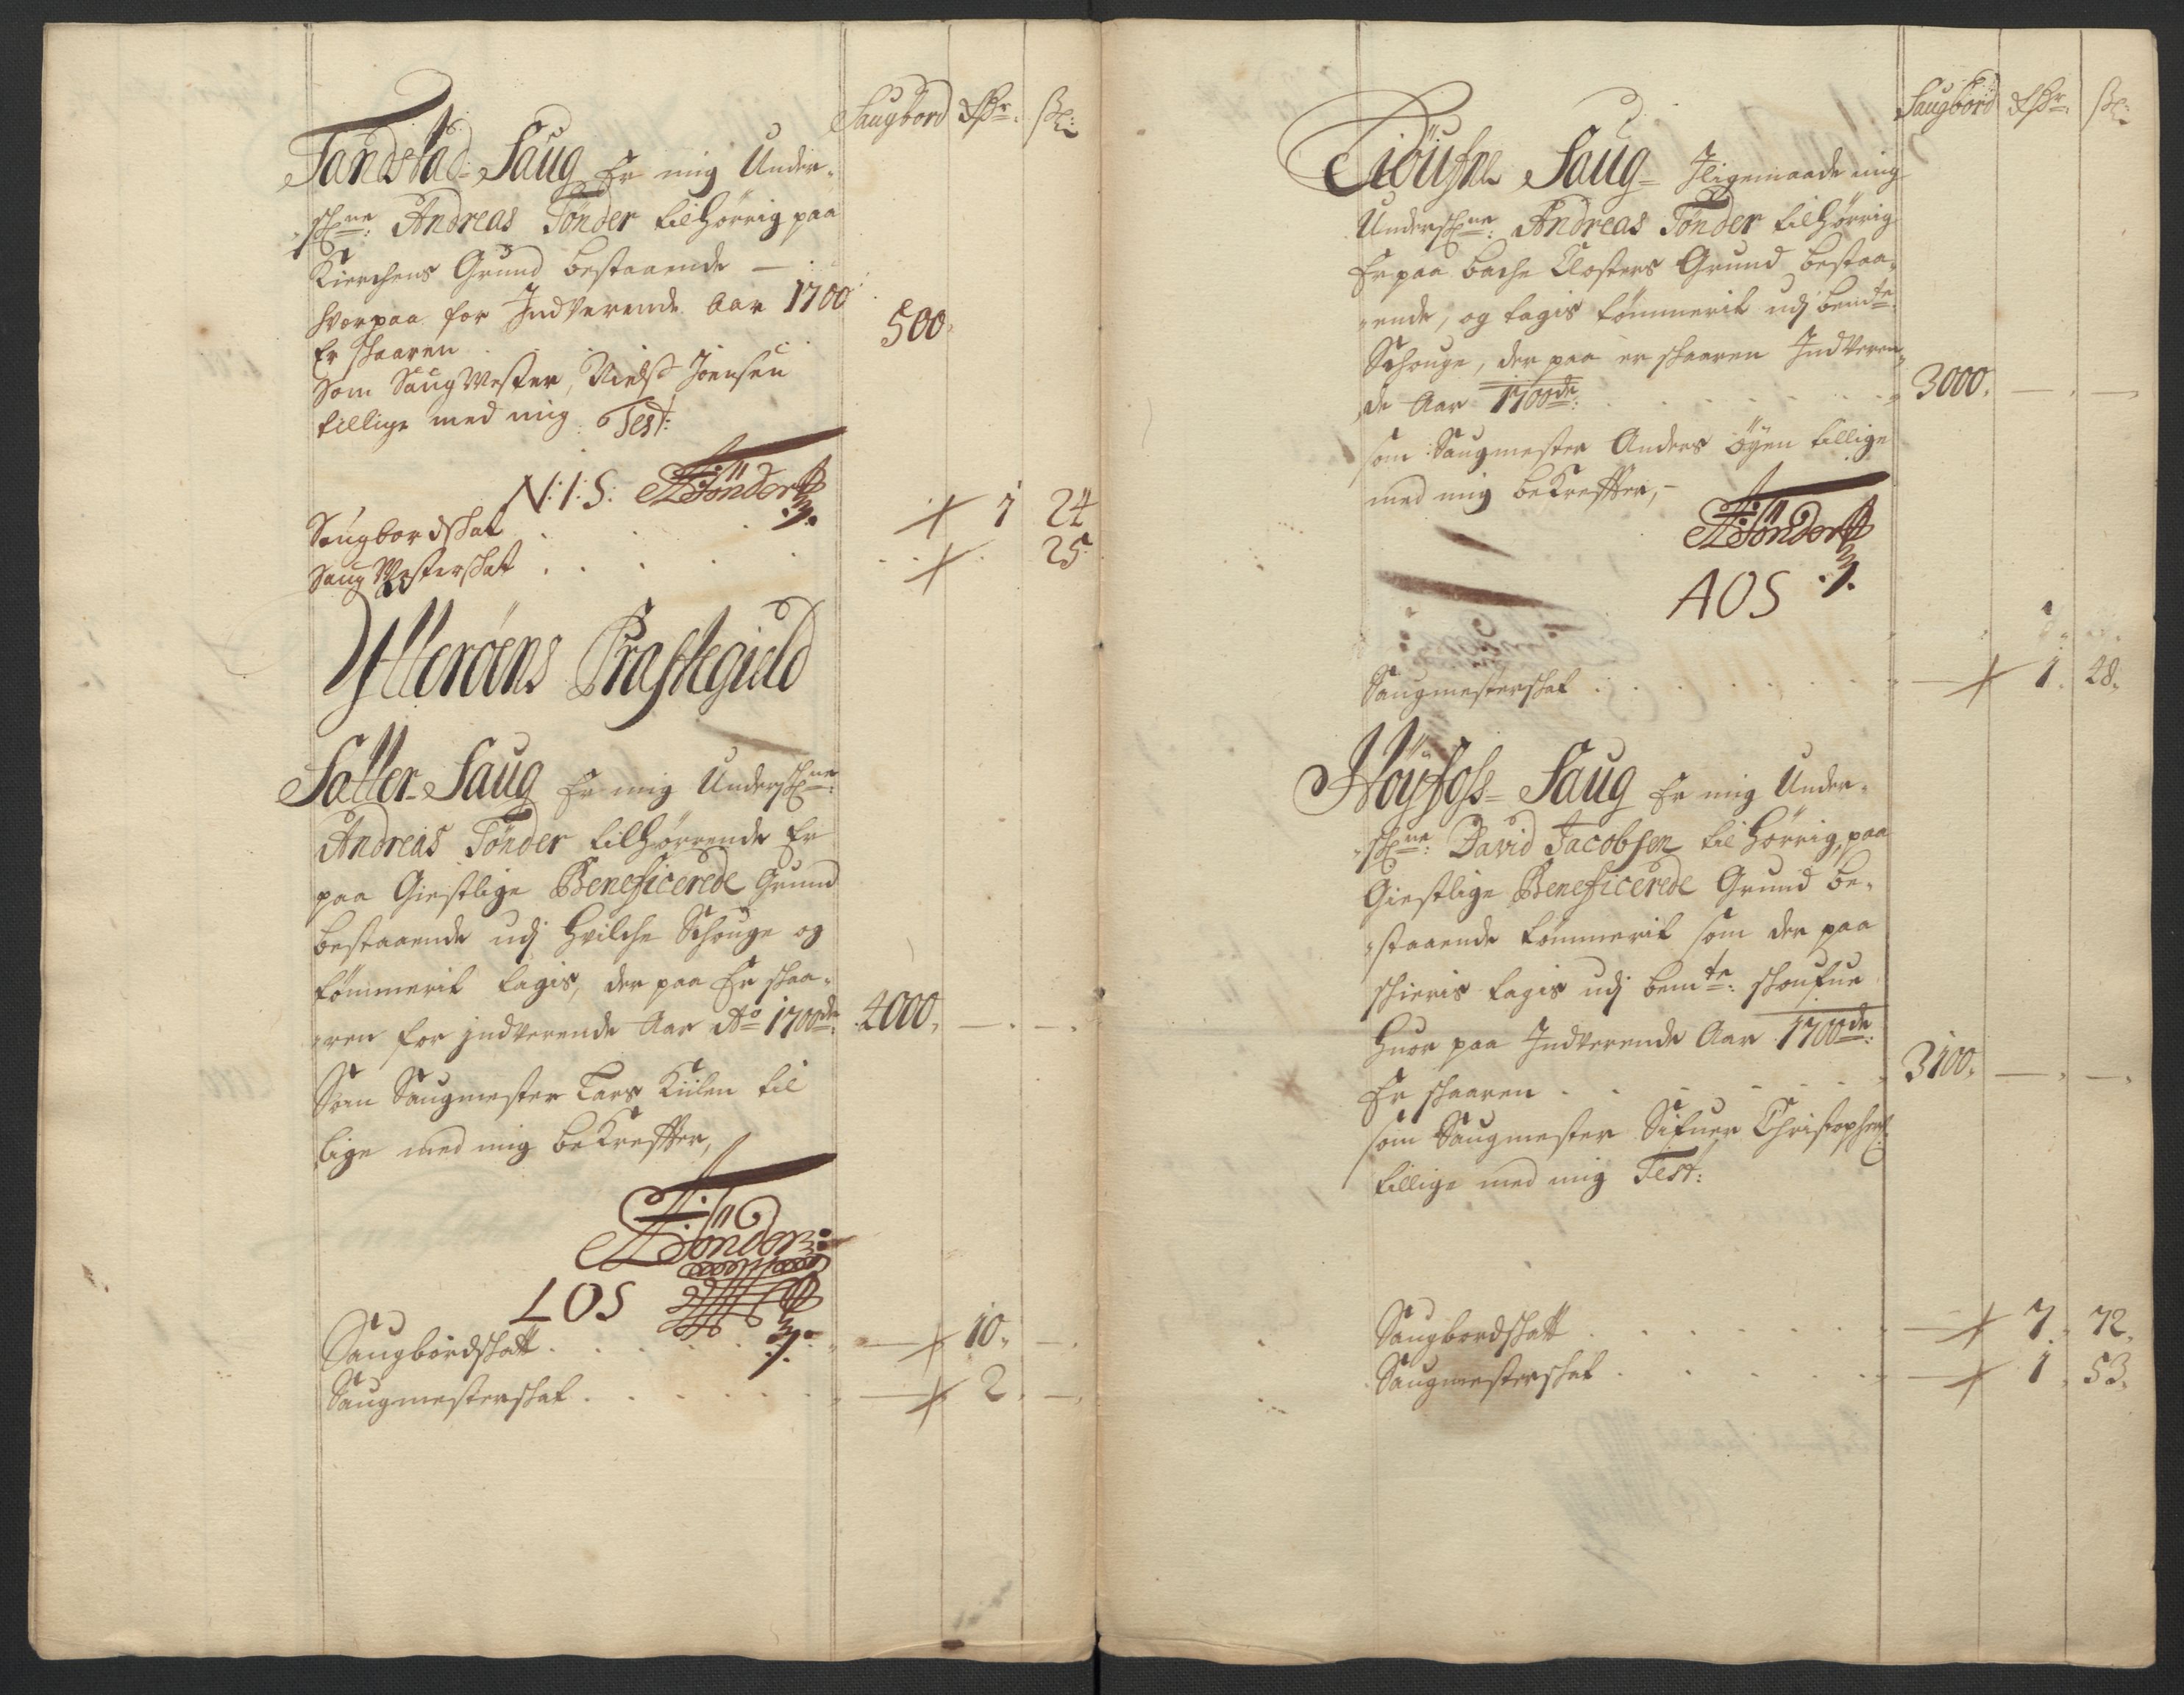 Saugbord Rdr. sk:
Tandstad Saug Er mig Under-
skr:ne: Andreas Tönder tilhörrig paa
Kierchens Grund bestaaende —
Hvorpaa for Indverende Aar 1700
Er skaaren . . . 500
Som Saug Mester, Nielss Joensen
tillige med mig Test:
N:I:S: ATönder
Saugbordskat . . . 1 24
Saug Mesterskat . . . . 25
Ytterøens Præstegield
Salter Saug Er mig Underskr:ne:
Andreas Tönder tilhörrende Er
paa Giestlige Beneficerede Grund
bestaaende udj Hvilche Schouge og
tömmerit tagis, der paa Er skaa-
ren for jndverende Aar Ao 1700de: 4000.
Som Saugmester Lars Kiilen til
lige med mig bekreffter,
ATönder
LOS
Saugbordskatt . . . 10.
Saugmesterskat . . . 2.
Saugbord Rdr. sk:
Saug Jligemaade mig
Underskr:ne: Andreas Tönder tilhörrig
Er paa bache Closters Grund bestaa-
ende, og tagis tömmerit udj bemte:
Schouge, der paa er skaaren Indveren-
de Aar 1700de: . . . 3000.
som Saugmester Anders öyen tillige
med mig bekreffter,
ATönder
AOS
Saugmesterskat . . . 1. 48.
Höyfoss Saug Er mig Under-
skr:ne: David Jacobsen tilhörrig, paa
Giestlige Beneficerede Grund be-
staaende tömmerit som der paa
skieris tagis udj bemte: skoufue
Huor paa Indverende Aar 1700de:
Er skaaren . . . 3100.
som Saugmester Sifuer Christophers:
tillige med mig Test:
Saugbordskatt . . . 7. 72.
Saugmesterskat . . . 1. 53.